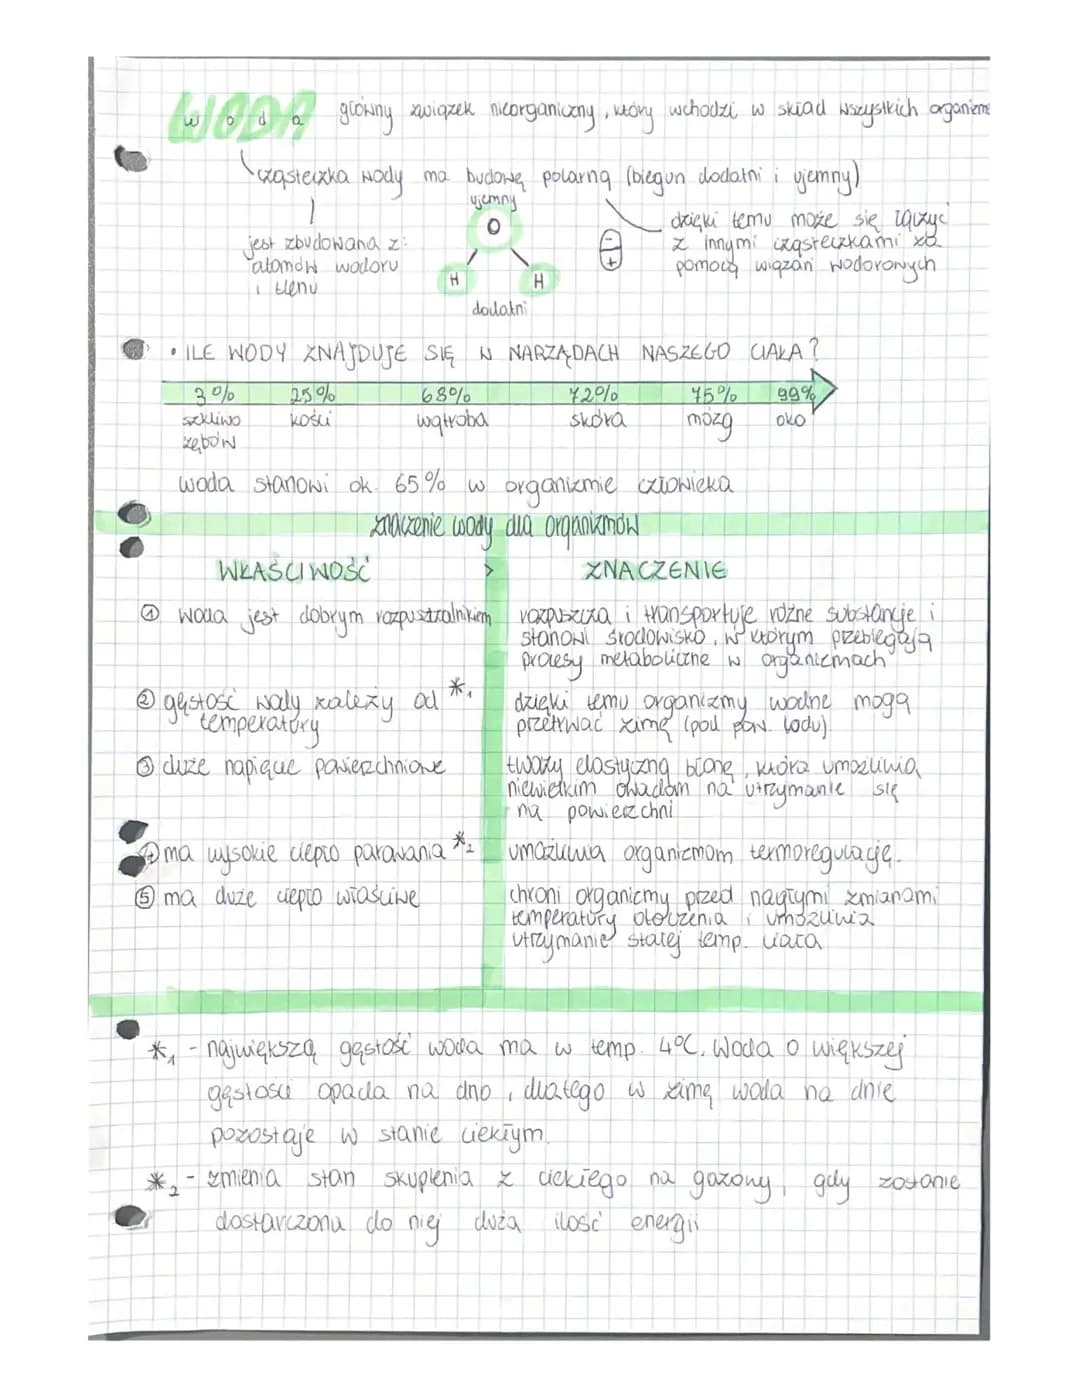 WODA główny związek nieorganiczny, który wchodzi w skład wszystkich organizm
w o d a
cząsteczka wody ma budowę polarną (biegun dodatni i ujemny)
jest zbudowana z:
atomów wodoru
i tlenu
ujemny
O
H H
dodatni
-
+
dzięki temu może się łączyć
z innymi cząsteczkami za
pomocą wiązań wodorowych
• ILE WODY ZNAJDUJE SIĘ W NARZĄDACH NASZEGO CIAŁA?
3% 25% 68% 72% 75% 99%
szkliwo kości wątroba skóra mózg oko
zębów
woda stanowi ok. 65% w organizmie człowieka
znaczenie wody dla organizmów
WŁAŚCIWOŚĆ > ZNACZENIE
① woda jest dobrym rozpuszczalnikiem
rozpuszcza i transportuje różne substancje i
stanowi środowisko, w którym przebiegają
procesy metaboliczne w organizmach
② gęstość wody zależy od *1
temperatury
dzięki temu organizmy wodne mogą
przetrwać zimę (pod pow. lodu)
③ duże napięcie powierzchniowe
tworzy elastyczną błonę, która umożliwia
niewielkim owadom na utrzymanie się
na powierzchni
④ ma wysokie ciepło parowania *2
umożliwia organizmom termoregulację.
⑤ ma duże ciepło właściwe
chroni organizmy przed nagłymi zmianami
temperatury otoczenia i umożliwia
utrzymanie stałej temp. ciała
*1 - największą gęstość woda ma w temp. 4°C. Woda o większej
gęstości opada na dno, dlatego w zimę woda na dnie
pozostaje w stanie ciekłym.
*2 - zmienia stan skupienia z ciekłego na gazowy, gdy zostanie
dostarczona do niej duża ilość energii